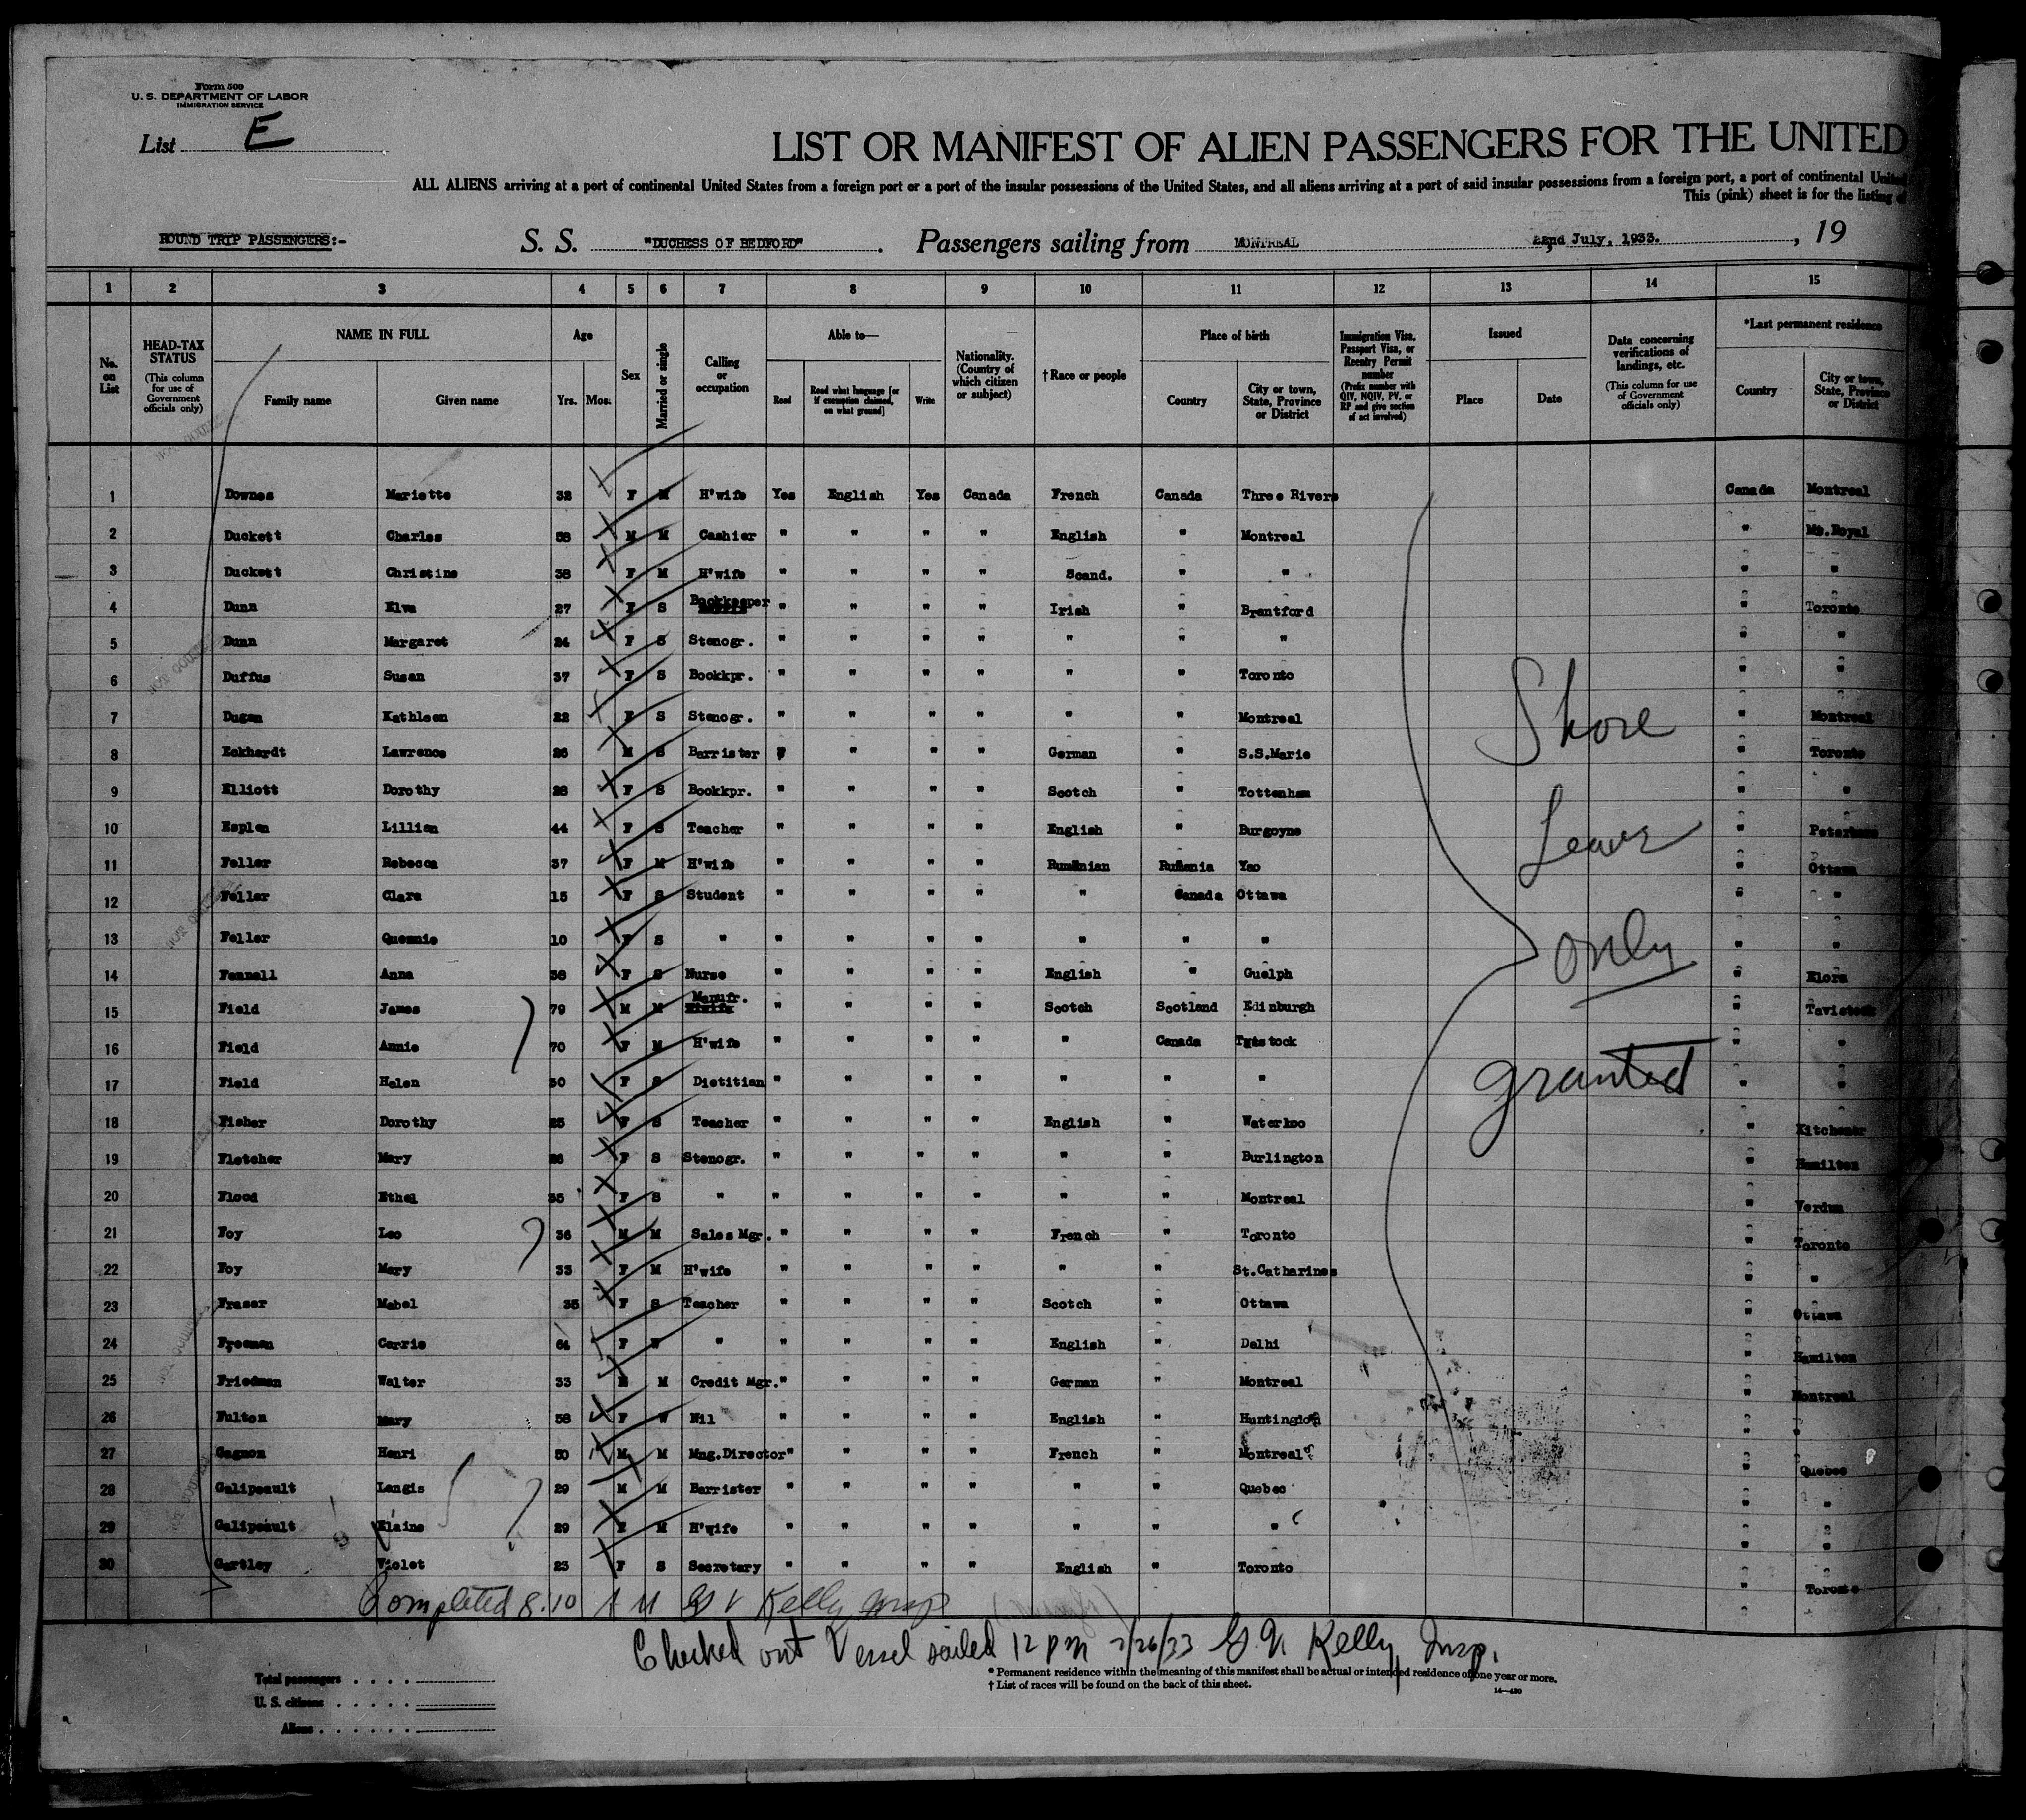 Form 500
U. S. DEPARTMENT OF LABOR
IMMIGRATION SERVICE
List E
LIST OR MANIFEST OF ALIEN PASSENGERS FOR THE UNITED
ALL ALIENS arriving at a port of continental United States from a foreign port or a port of the insular possessions of the United States, and all aliens arriving at a port of said insular possessions from a foreign port, a port of continental United
This (pink) sheet is for the listing of
ROUND TRIP PASSENGERS:- S. S. "DUCHESS OF BEDFORD". Passengers sailing from MONTREAL 22nd July, 1933. , 19
1 2 3 4 5 6 7 8 9 10 11 12 13 14 15
No. on List
HEAD-TAX STATUS (This column for use of Government officials only)
NAME IN FULL
Family name Given name
Age
Yrs. Mos.
Sex
Married or single
Calling or occupation
Able to—
Read Read what language [or if exemption claimed, on what ground] Write
Nationality. (Country of which citizen or subject)
† Race or people
Place of birth
Country City or town, State, Province or District
Immigration Visa, Passport Visa, or Reentry Permit number (Prefix number with QIV, NQIV, PV, or RP and give section of act involved)
Issued
Place Date
Data concerning verifications of landings, etc. (This column for use of Government officials only)
*Last permanent residence
Country City or town, State, Province or District
1 Downes Mariette 32 F M H'wife Yes English Yes Canada French Canada Three Rivers Canada Montreal
2 Duckett Charles 58 M M Cashier " " " " English " Montreal " Mt.Royal
3 Duckett Christine 38 F M H'wife " " " " Scand. " " " "
4 Dunn Elva 27 F S Bookkeeper " " " " Irish " Brantford " Toronto
5 Dunn Margaret 24 F S Stenogr. " " " " " " " " "
6 Duffus Susan 37 F S Bookkpr. " " " " " " Toronto " "
7 Dugan Kathleen 22 F S Stenogr. " " " " " " Montreal " Montreal
8 Eckhardt Lawrence 26 M S Barrister " " " " German " S.S.Marie " Toronto
9 Elliott Dorothy 28 F S Bookkpr. " " " " Scotch " Tottenham " "
10 Esplen Lillian 44 F S Teacher " " " " English " Burgoyne "
11 Feller Rebecca 37 F M H'wife " " " " Rumanian Rumania Yao " Ottawa
12 Feller Clara 15 F S Student " " " " " Canada Ottawa " "
13 Feller Queenie 10 F S " " " " " " " " " "
14 Fennell Anna 38 F S Nurse " " " " English " Guelph " Elora
15 Field James 79 M M Manufr. " " " " Scotch Scotland Edinburgh " Tavistock
16 Field Annie 70 F M H'wife " " " " " Canada " "
17 Field Helen 30 F S Dietitian " " " " " " " " "
18 Fisher Dorothy 25 F S Teacher " " " " English " Waterloo " Kitchener
19 Fletcher Mary 26 F S Stenogr. " " " " " " Burlington " Hamilton
20 Flood Ethel 35 F S " " " " " " " Montreal Verdun
21 Foy Leo 36 M M Sales Mgr. " " " " French " Toronto " Toronto
22 Foy Mary 33 F M H'wife " " " " " " St.Catharines " "
23 Fraser Mabel 35 F S Teacher " " " " Scotch " Ottawa " Ottawa
24 Freeman Carrie 64 F W " " " " " English " Delhi " Hamilton
25 Friedman Walter 33 M M Credit Mgr. " " " " German " Montreal " Montreal
26 Fulton Mary 58 F W Nil " " " " English " Huntingdon " "
27 Gagnon Henri 50 M M Mng.Director " " " " French " Montreal " Quebec
28 Galipeault Langis 29 M M Barrister " " " " " " Quebec " "
29 Galipeault Elaine 29 F M H'wife " " " " " " " " "
30 Gartley Violet 23 F S Secretary " " " " English " Toronto " Toronto
Shore
Leave
only
granted
Completed 8:10 AM G V Kelly Insp
Checked out Vessel sailed 12 PM 7/26/33 G.V. Kelly, Insp.
* Permanent residence within the meaning of this manifest shall be actual or intended residence of one year or more.
† List of races will be found on the back of this sheet.
14—430
Total passengers
U. S. citizens
Aliens